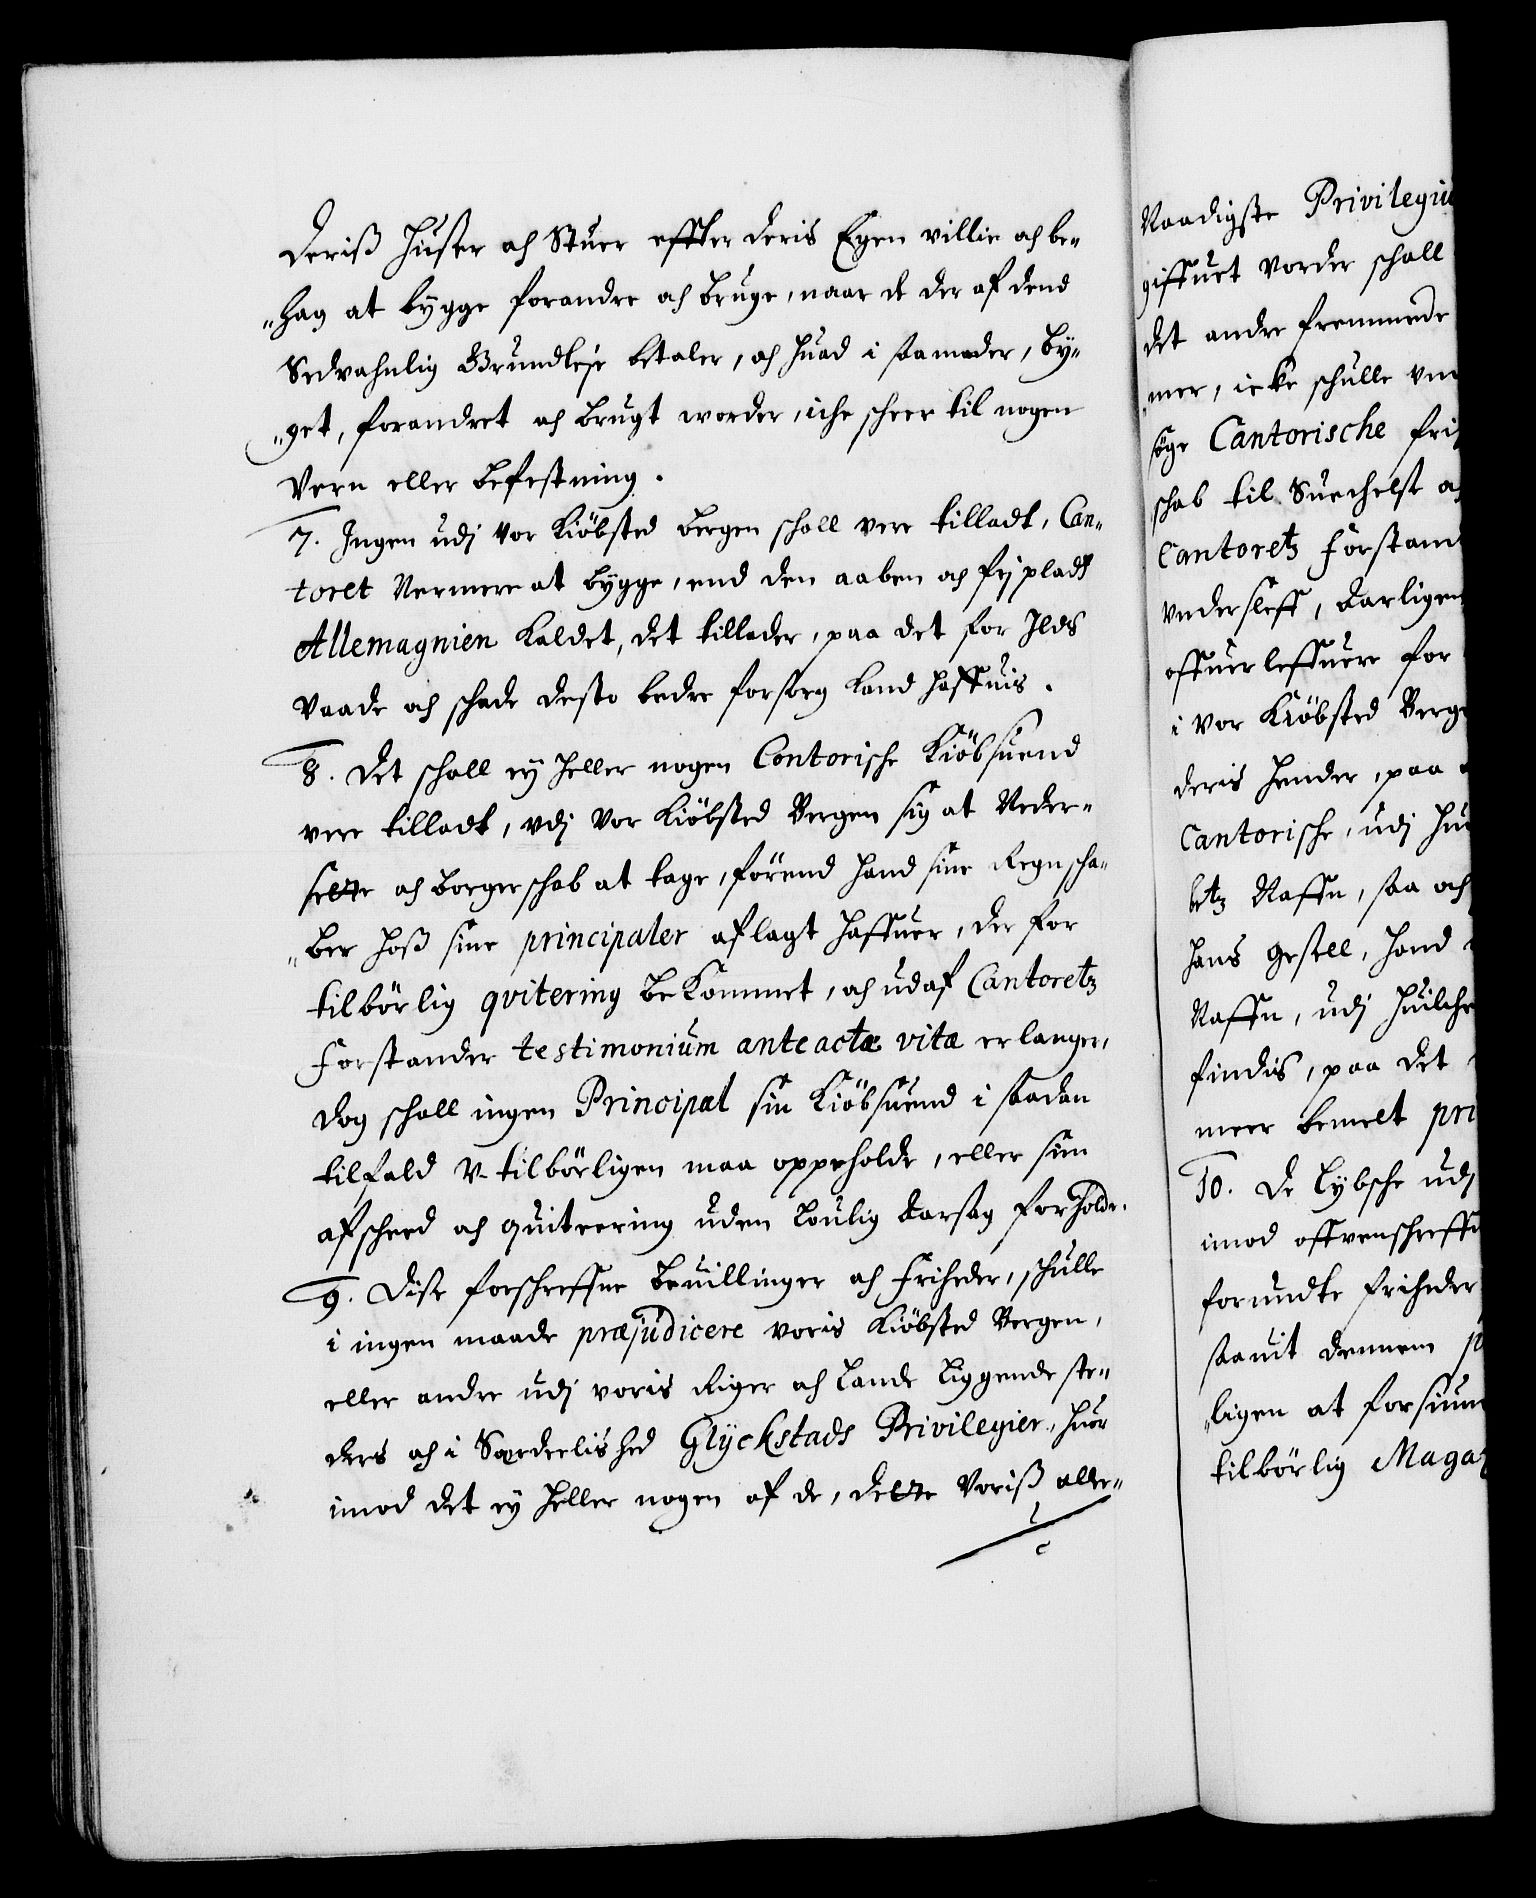 Deriß Huser och Stuer effter deris Egen villie och be-
hag at bygge forandre och bruge, naar de der af dend
Sedvahnlig Grundleje betaler, och huad i saamader, by-
get, forandret och brugt worder, iche scheer til nogen
Vern eller befestning.
7. Ingen udj vor Kiöbsted bergen schall vere tilladt, Can-
toret Nermere at bygge, end den aaben och frj pladtz
Allemagnien kaldet, det tillader, paa det for Ilds
vaade och schade desto bedre forsorg kand haffuis.
8. Det schall ej heller nogen Contorische Kiöbsuend
vere tilladt, vdj vor Kiöbsted Bergen sig at Neder-
sette och borgerschab at tage, förend hand sine Regnscha-
ber hoß sine principaler aflagt haffuer, der for
tilbörlig qvitering bekommet, och udaf Cantoretz
Forstander testimonium anteactæ vitæ erlanger,
dog schall ingen Principal sin Kiöbsuend i saadan
tilfald v-tilbörligen maa oppeholde, eller sin
afscheed och quitering uden loulig Aarsag forholde.
9. Dise forschreffne beuillinger och Friheder, schulle
i ingen maade præjudicere voris Kiöbsted Bergen,
eller andre udj voris Riger och Lande liggende ste-
ders och i Særdeelished Glyckstads Privilegier, huor
imod det ej heller nogen af de, dette voriß aller-
Naadigste Privilegiu
giffuet vorder schall
det andre fremmede
mer, icke schulle
söge Cantorische
schab til Suechelse
Cantoretz Forstand
vndersleff,
offuerleffuere for
i vor Kiöbsted Berg
deris hender, paa
Cantorische, udj
betz Naffn, saa och
hans gesell, hand
Naffn, udj huilche
findis, paa det
meer bemelt pri
10. De Lybsche udj
imod offvenschreffn
forundte friheder
saauit dennem
ligen at forsiun
tilbörlig Magaz